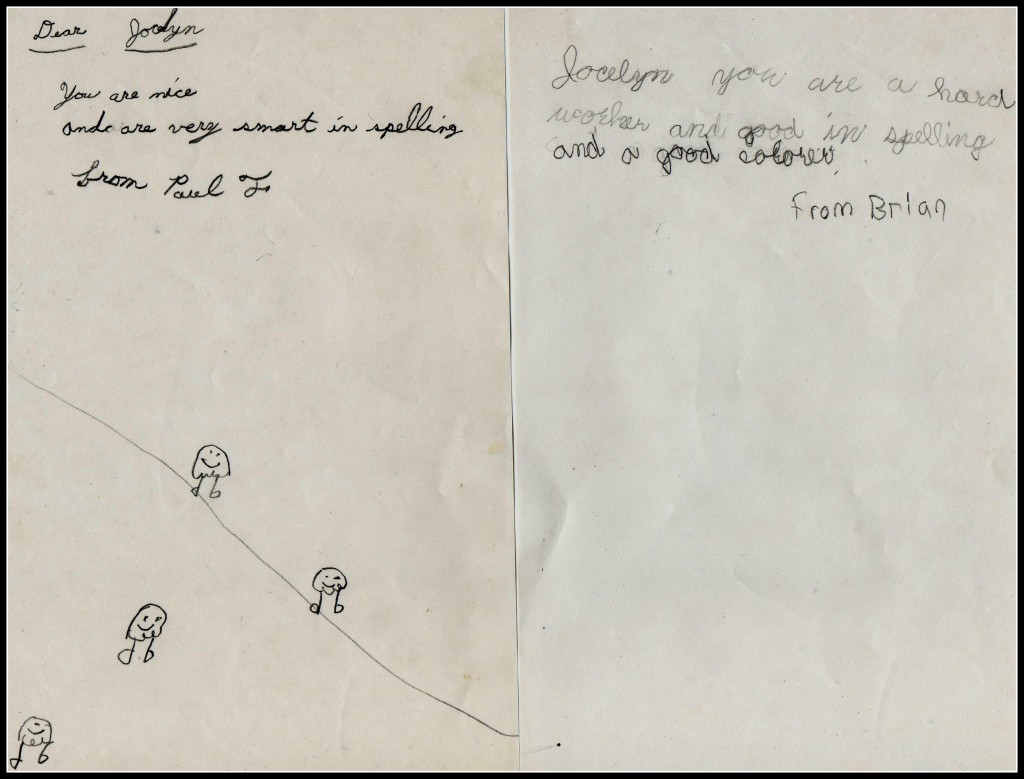 Dear Jocelyn
You are nice
and are very smart in spelling
from Paul F.
Jocelyn you are a hard
worker and good in spelling
and a good colorer.
From Brian